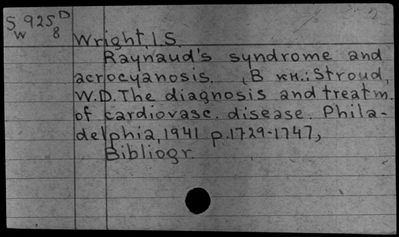 S 925 D
W 8
Wright, I.S.
Raynaud's syndrome and
acrocyanosis. (В кн.: Stroud,
W.D. The diagnosis and treatm.
of cardiovasc. disease. Phila-
delphia, 1941 p. 1729-1747,
Bibliogr.